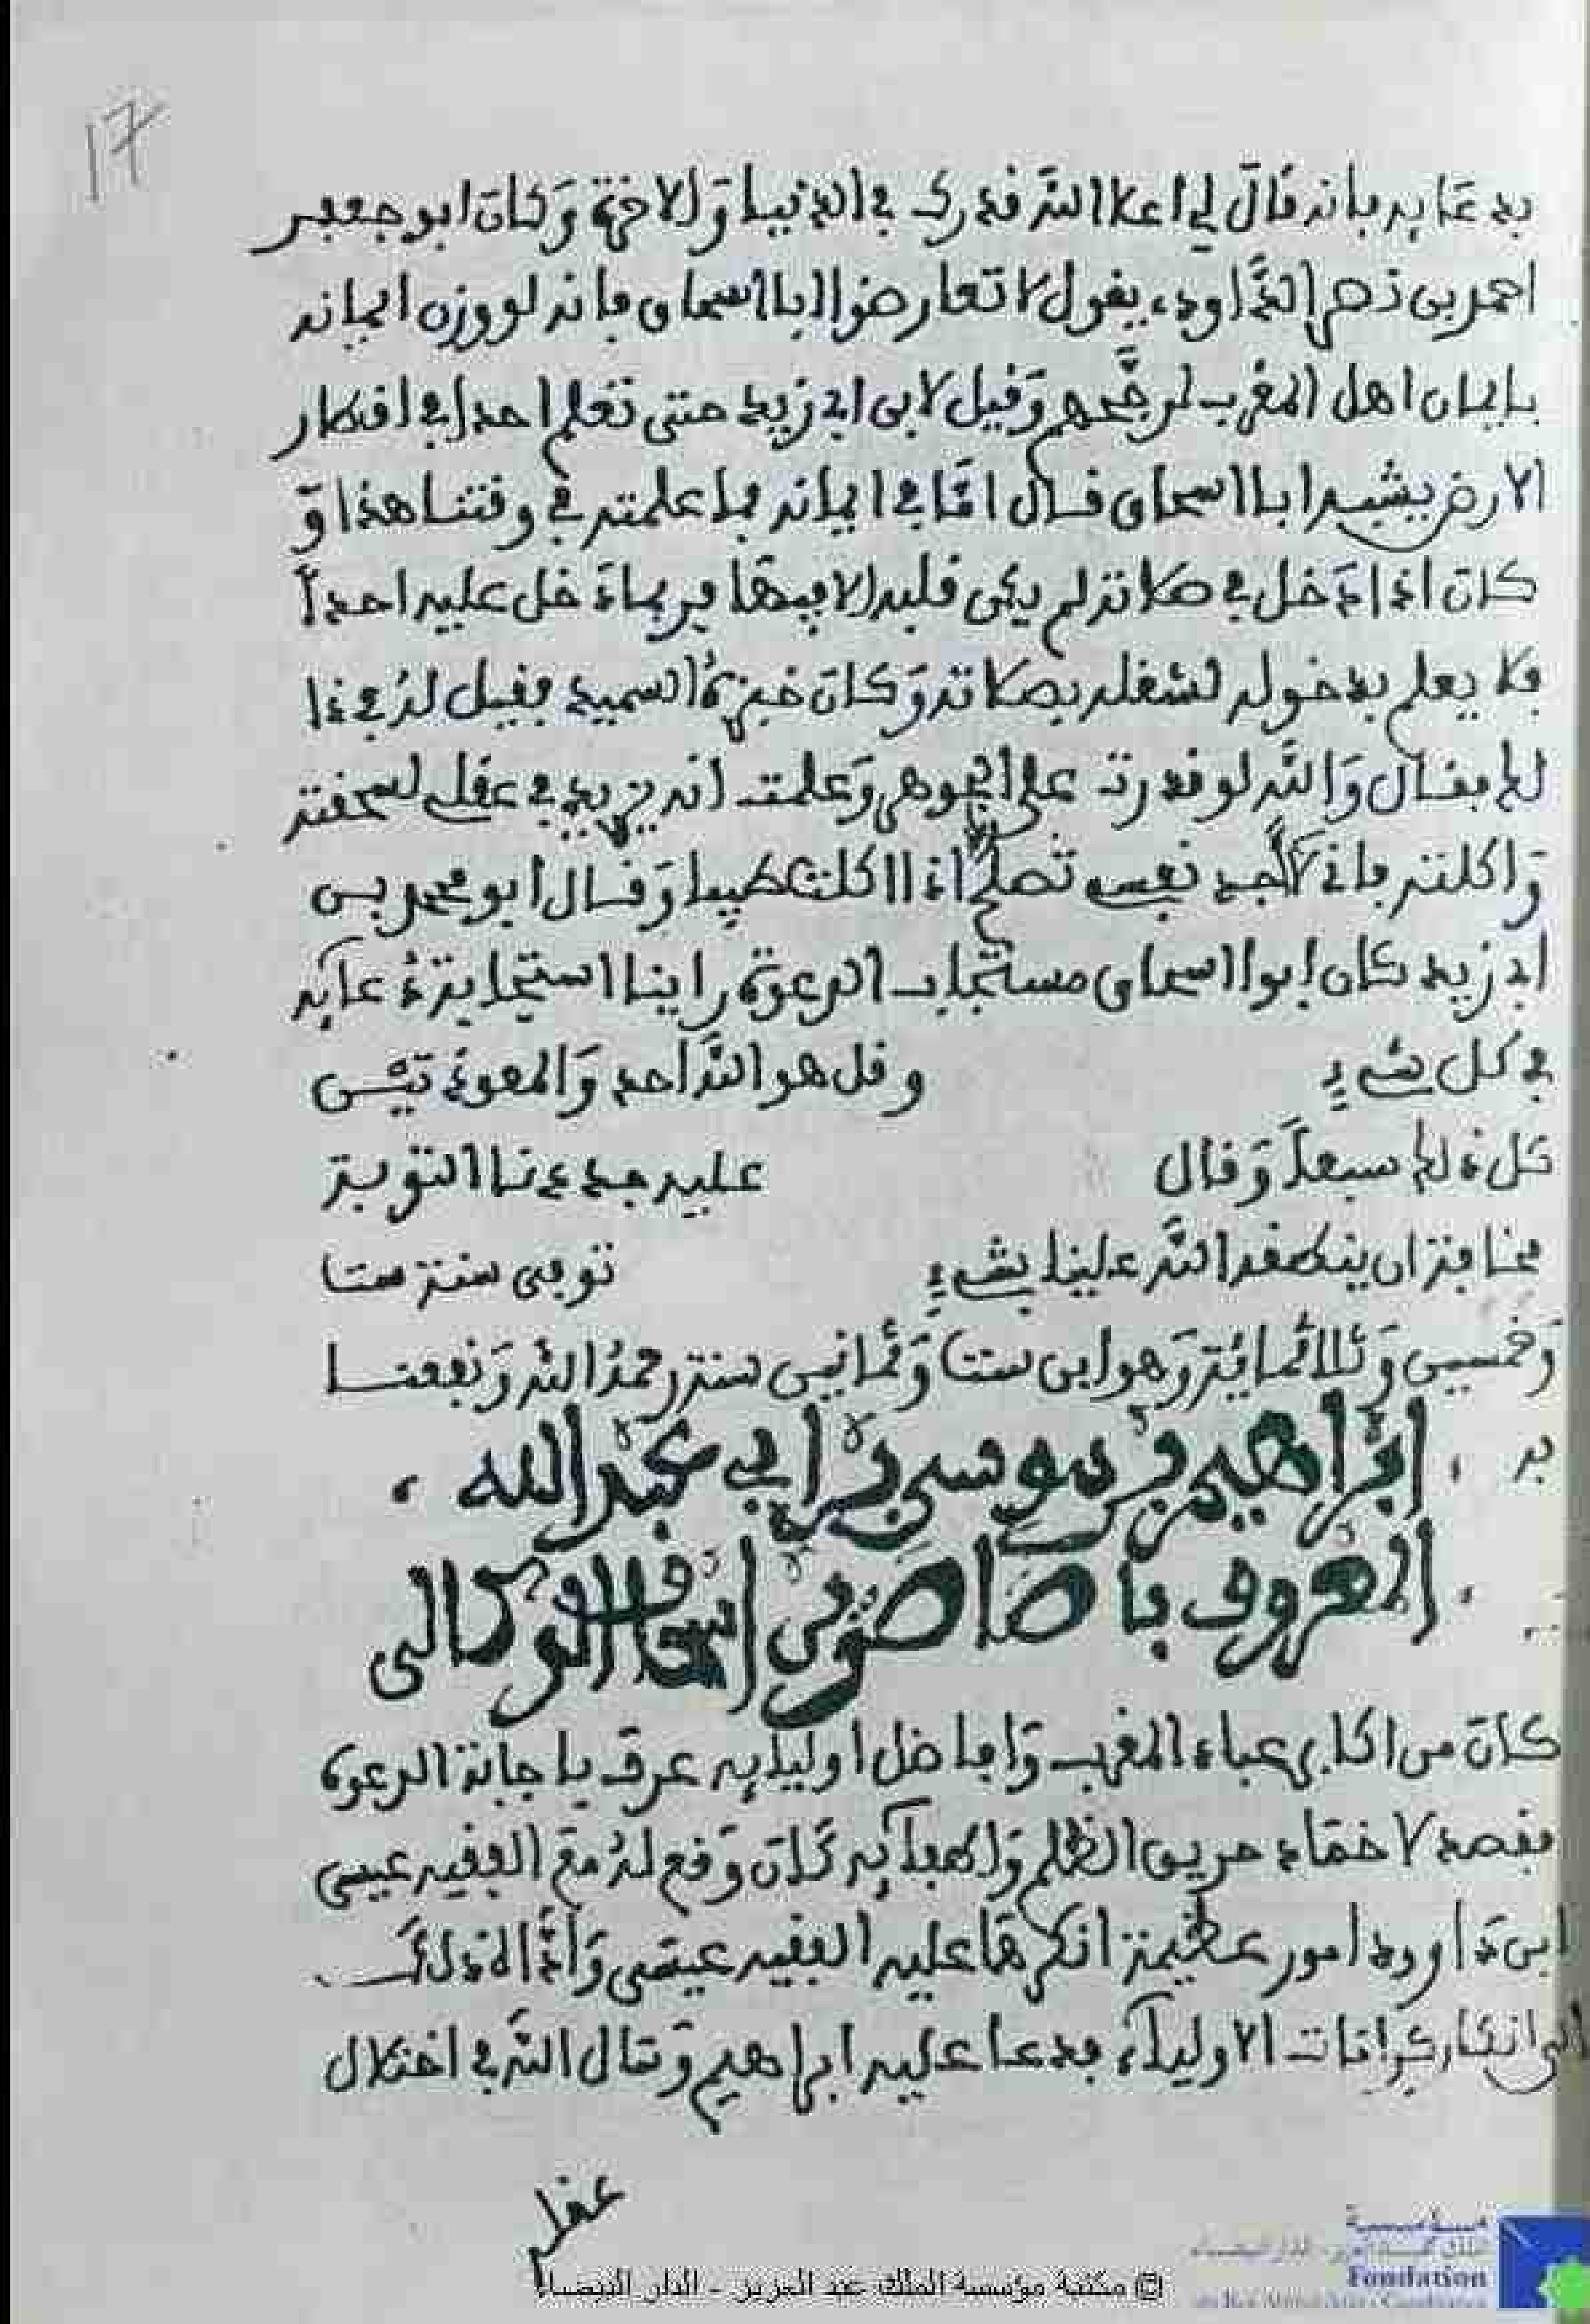 17
بدعايه بانه قال لي اعلا الله قدرك في الدنيا وَالاخرة وَكانَ ابو جعفر
احمد بن نصر الدَّاودي يقول لا تعارضوا ابا اسحاق فانه لو وزن ايمانه
بايمان اهل المغرب لرجَّحهم وَقيل لابن ابي زيد حتى تَعلم احدا في اقطار
الارض يشبه ابا اسحاق قال امَّا في ايمانه فما علمته في وقتنا هذا وَ
كانَ اذا دَخل في صلاته لم يكن قلبه الا فيهَا فربما دَخل عليه احداً
فلا يعلم بدخوله لشغله بصلاته وَكانَ خبزهُ السميد فقيل لهُ في ذا
لك فقال وَاللَّه لو قدرت على الجوهر وَعلمت انه يزيد في عقلي لسحقته
وَاكلته فاني لا أجد نفسي تَصلح اذا اكلت طيبا وَقال ابو محمد بن
ابي زيد كان ابوا اسحاق مستجاب الدعوة راينا استجابة دُعايه
في كل شيءٍ وقل هو اللَّه احد وَالمعوذتَيْن
كل ذلك سبعاً وَقال عليه جددنا التوبة
مخافة ان ينطقه اللَّه علينا بشيءٍ توفي سنة ست
وَخمسين وَثلاثمائة وَهو ابن ست وَثمانين سنة رحمهُ اللّه وَنفعنا
به . ابراهيم بن موسى بن ابي عبد الله ،
. المعروف باصاصو بن اسحاق الوركالى
كانَ من اكابر عباد المغرب وَافاضل اوليايه عرف باجابة الدعوة
فقصد لاخمَاد حريق الظلم وَاطفايه كَانَ وَقع لهُ مَع الفقيه عيسى
ابن دَاوود امور عظيمة انكرهَا عليه الفقيه عيسى وَادَّاه ذلك
الى انكار كرامات الاوليآء فدعا عليه ابراهيم وَسَال اللّه في اختلال
عقله
© مكتبة مؤسسة الملك عبد العزيز - الدار البيضاء
مؤسسة
الملك عبد العزيز - الدار البيضاء
Fondation